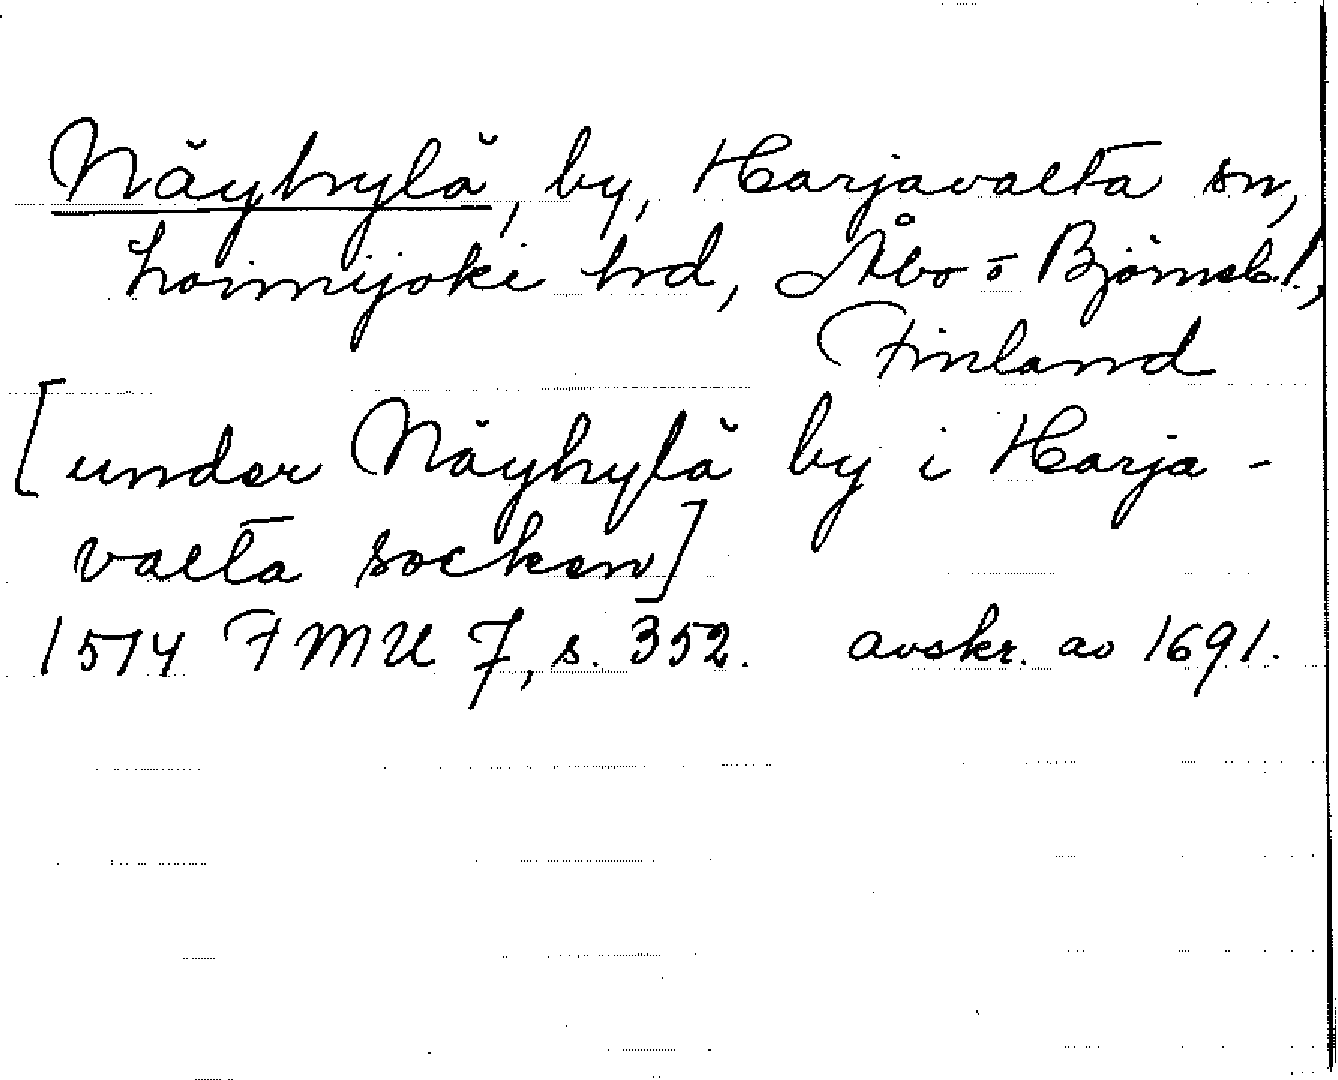 Näyhylä, by, Harjavalta sn,
Loimijoki hd, Åbo o Björnebl.,
Finland
[under Näyhylä by i Harja-
valta socken]
1514 FMU 7, s. 352. avskr. av 1691.